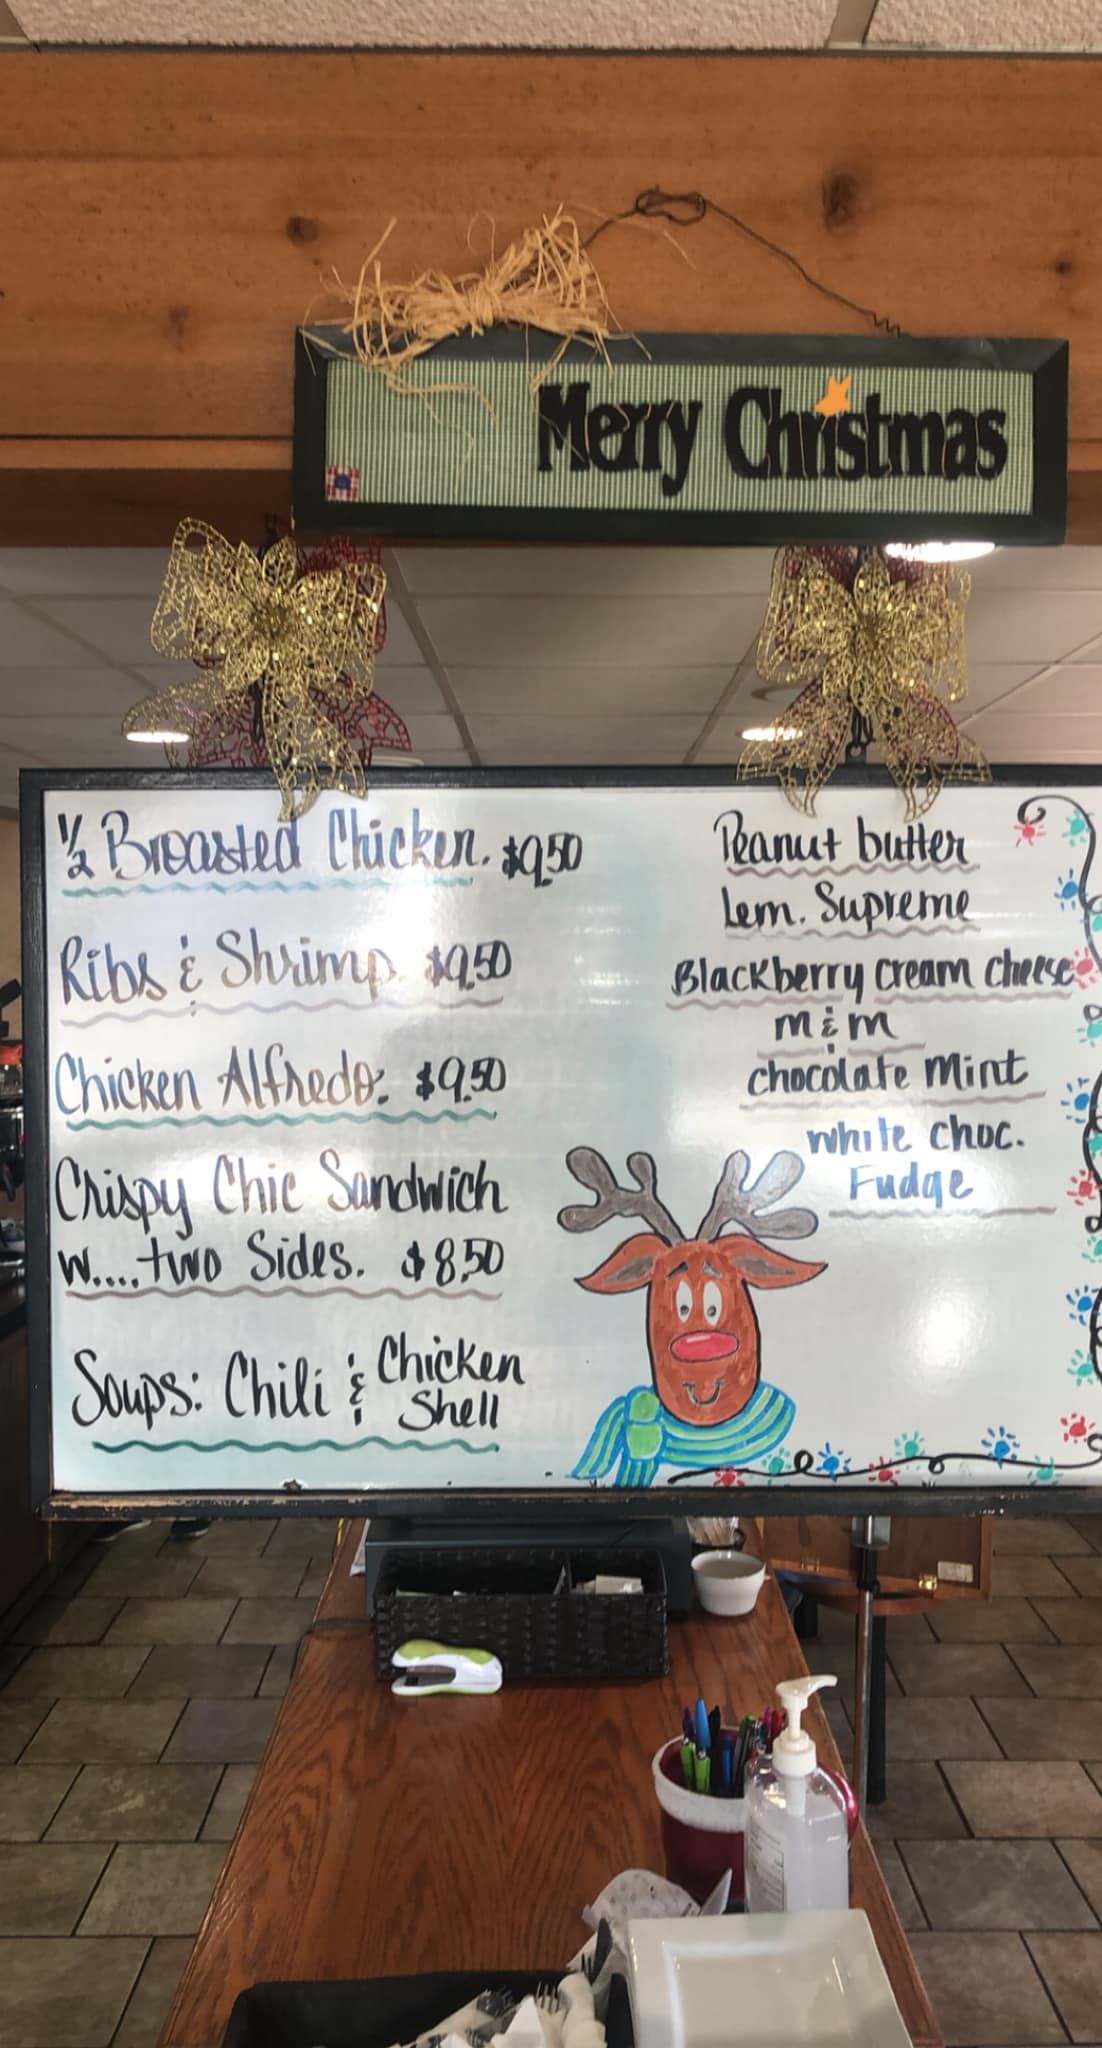 Merry Christmas
1/2 Broasted Chicken. $9.50
Ribs & Shrimp. $9.50
Chicken Alfredo. $9.50
Crispy Chic Sandwich
w....two Sides. $8.50
Soups: Chili & Chicken
Shell
Peanut butter
Lem. Supreme
Blackberry cream cheese
m&m
chocolate mint
white choc.
Fudge